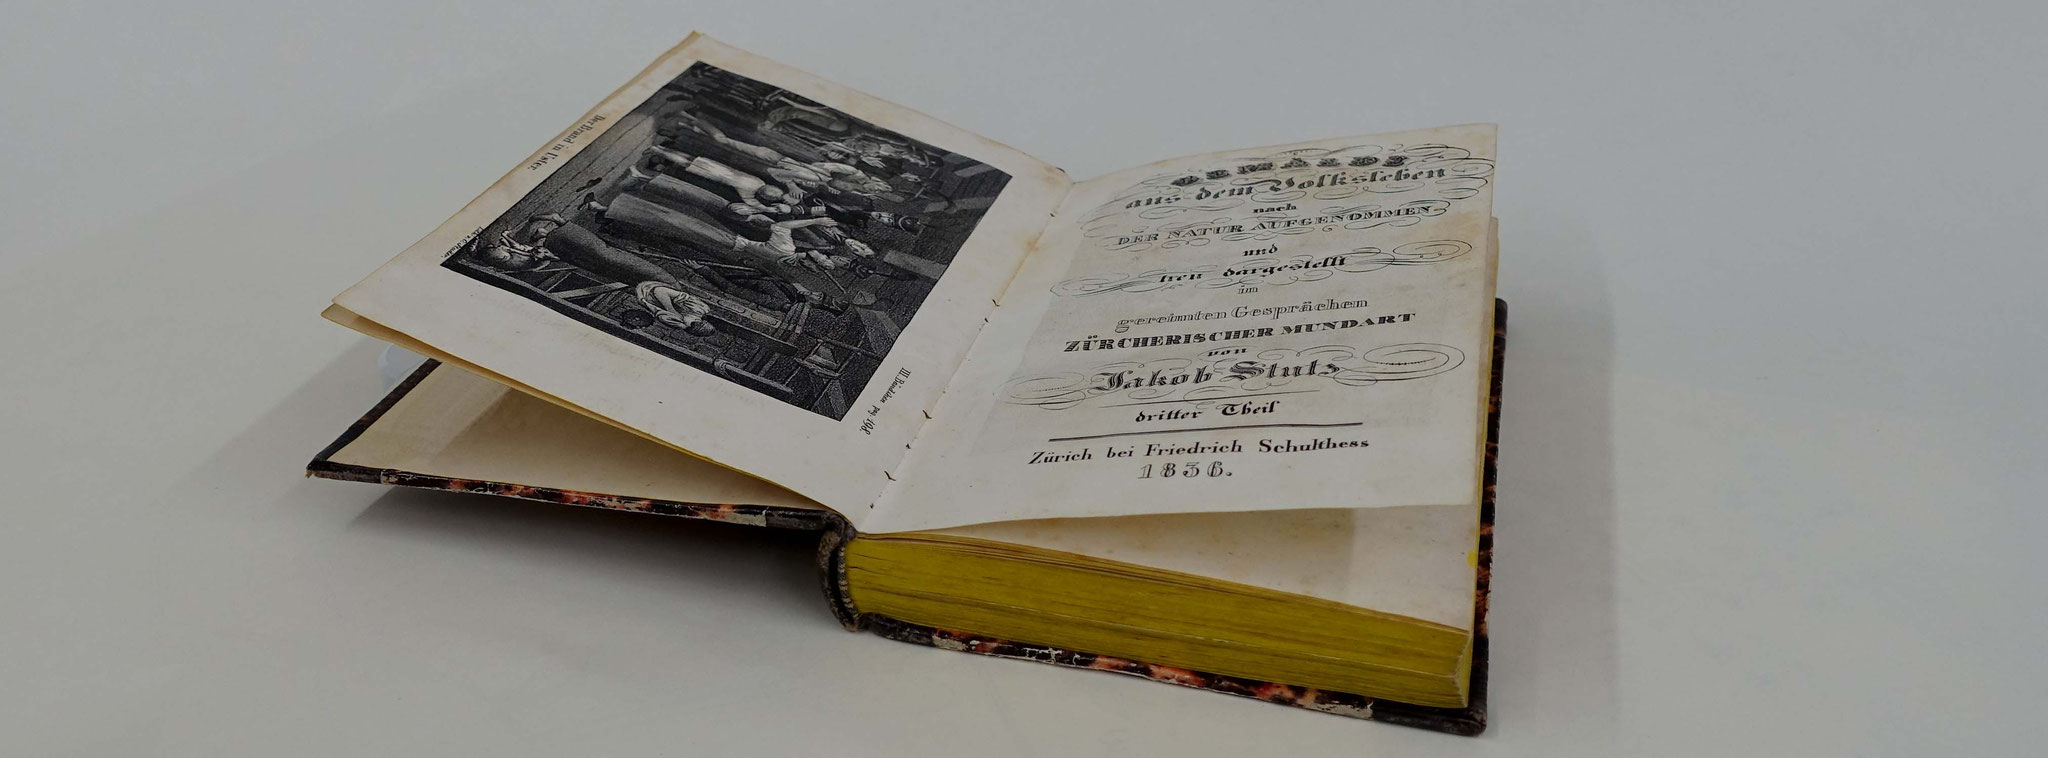 Der Brand in Uster.
III. Bändchen pag. 198.
GEMÄLDE
aus dem Volksleben
nach
DER NATUR AUFGENOMMEN
und
treu dargestellt
im
gereimten Gesprächen
ZÜRCHERISCHER MUNDART
von
Jakob Stutz
dritter Theil
Zürich bei Friedrich Schulthess
1836.